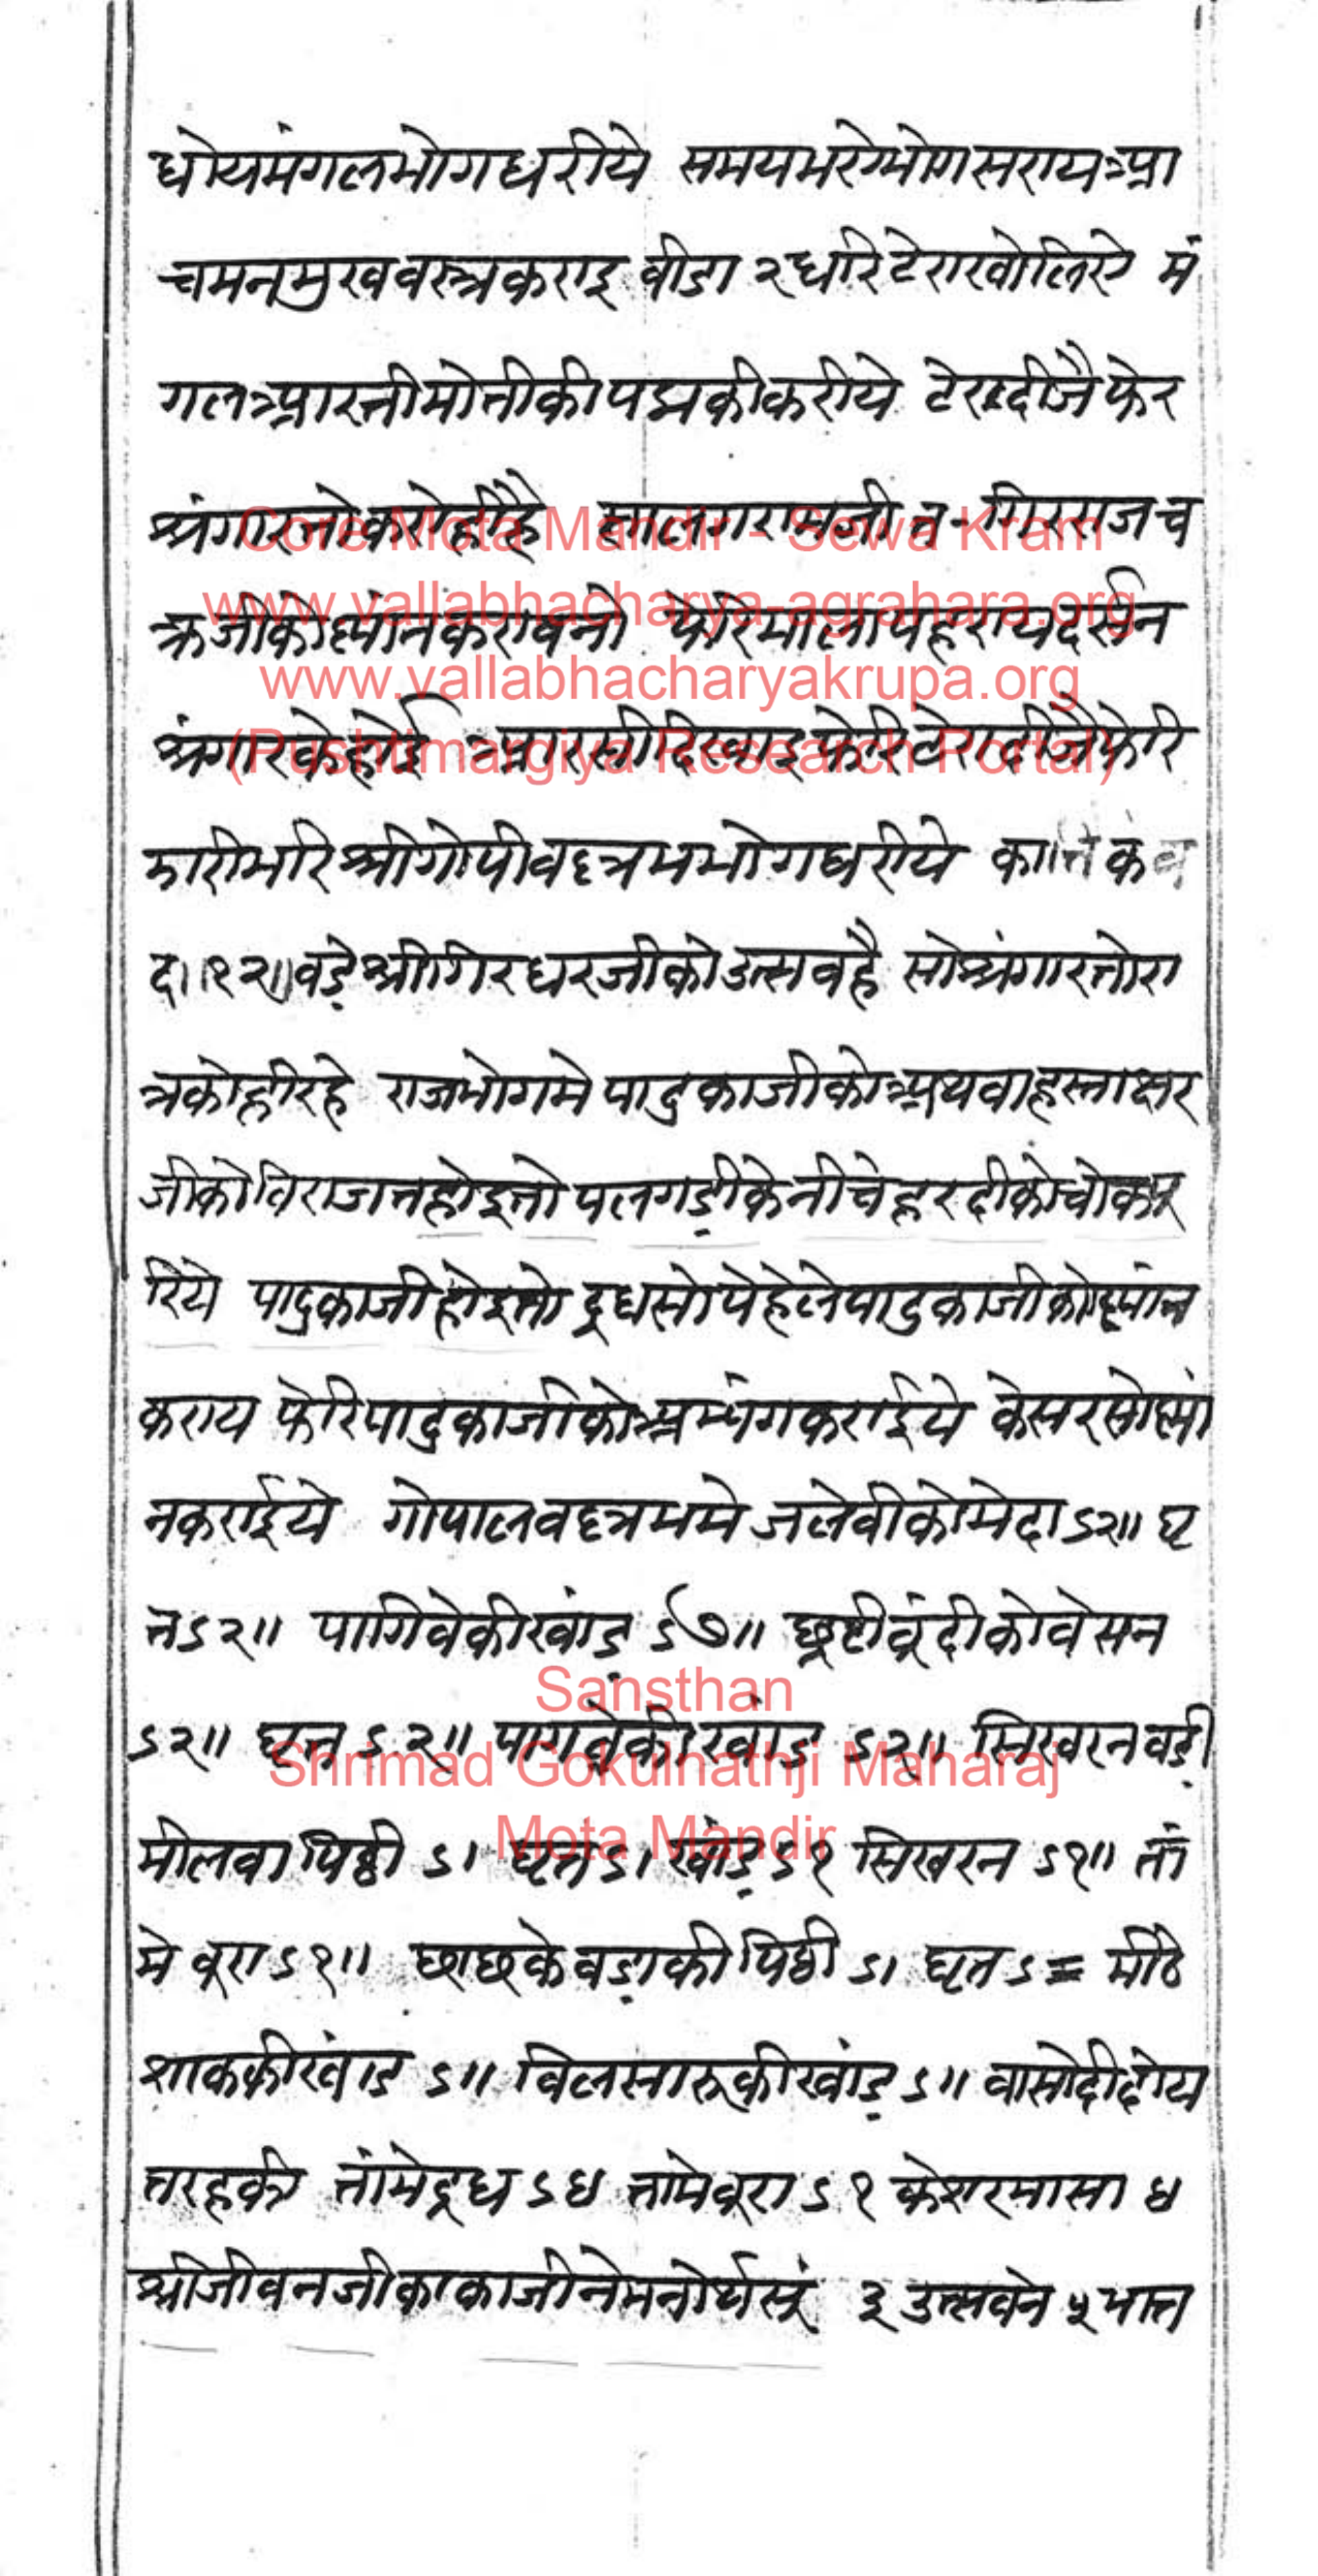 धोयमंगलभोगधरीये समयभरेभोगसरायआ
चमनमुखवस्त्रकराइ वीडा २ धरिटेराखोलिये मं
गलआरतीमोतीकीपद्मकीकरीये टेरादीजै फेर
श्रंगारतोवडोहीहै सालगरामजी व गिरराजच
क्रजीकोस्नांनकरावनो फेरिमालापहरायदर्सन
श्रंगारकेहोई आरसीदिखाइफेरीटेरादीजैफेरि
झारीभरिश्रीगोपीवल्लभभोगधरीये कार्तिकव
द॥१२॥वडे़श्रीगिरधरजीकोउत्सवहै सोश्रंगारतोरा
त्रकोहीरहे राजभोगमे पादुकाजीकोअथवाहस्ताक्षर
जीकोविराजतहोइतो पलगडी़केनीचेहरदीकोचोकपू
रिये पादुकाजीहोइतो दूधसोपेहेलेपादुकाजीकोस्नांन
कराय फेरिपादुकाजीकोअभ्यंगकराईये केसरसोस्नां
नकराईये गोपालवल्लभमे जलेवीकोमेदाऽ२॥ घृ
तऽ२॥ पागिवेकीखांड़ ऽ७॥ छूटीवूंदीकोवेसन
ऽ२॥ घृत ऽ२॥ पागवेकीखांड ऽ२॥ सिखरनवडी़
मीलवा पिठ्ठी ऽ। घृत ऽ। खांड़ ऽ१ सिखरन ऽ१॥ तां
मे वूरा ऽ१॥ छाछकेवडा़की पिठ्ठी ऽ। घृत ऽ= मीठे
शाककीखांड ऽ॥ विलसारुकीखांड़ ऽ॥ वासोदीदोय
तरहकी तांमेदूध ऽ४ तामेवूरा ऽ१ केशरमासा ४
श्रीजीवनजीकाकाजीनेमनोर्थसूं ३ उत्सवेन ५ भात
Core Mota Mandir - Sewa Kram
www.vallabhacharya-agrahara.org
www.vallabhacharyakrupa.org
(Pushtimargiya Research Portal)
Sansthan
Shrimad Gokulnathji Maharaj
Mota Mandir